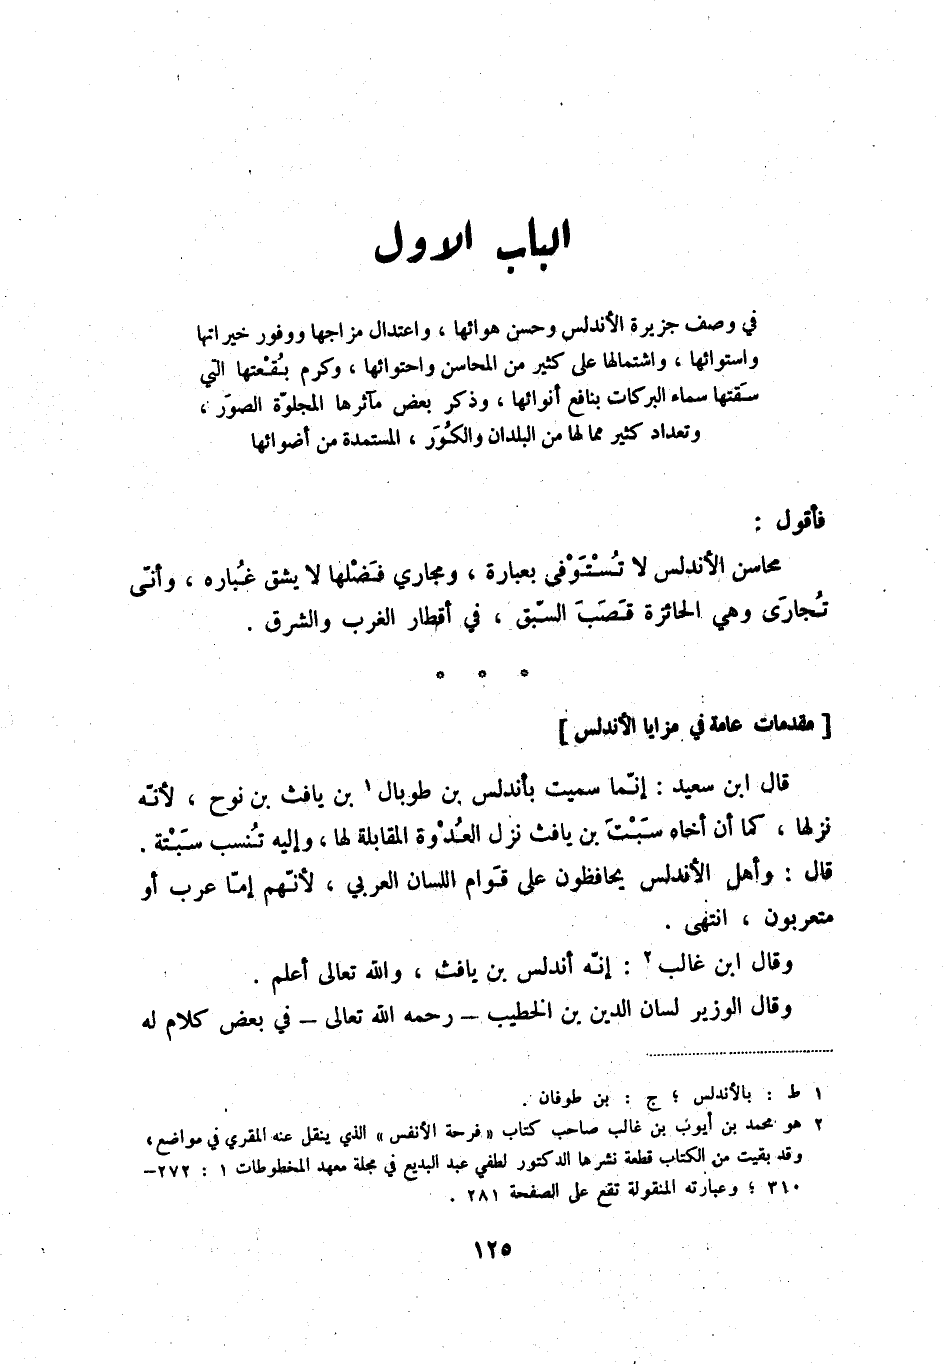 الباب الاول
في وصف جزيرة الأندلس وحسن هوائها ، واعتدال مزاجها ووفور خيراتها
واستوائها ، واشتمالها على كثير من المحاسن واحتوائها ، وكرم بُقْعتها التي
سَقتها سماء البركات بنافع أنوائها ، وذكر بعض مآثرها المجلوّة الصوَر ،
وتعداد كثير مما لها من البلدان والكُوَر ، المستمدة من أضوائها
فأقول :
محاسن الأندلس لا تُسْتَوْفى بعبارة ، ومجاري فَضْلها لا يشق غُباره ، وأنّى
تُجارَى وهي الحائزة قَصَبَ السّبق ، في أقطار الغرب والشرق .
* * *
[ مقدمات عامة في مزايا الأندلس ]
قال ابن سعيد : إنّما سميت بأندلس بن طوبال ١ بن يافث بن نوح ، لأنّه
نزلها ، كما أن أخاه سَبْتَ بن يافث نزل العُدْوة المقابلة لها ، وإليه تُنسب سَبْتة .
قال : وأهل الأندلس يحافظون على قَوام اللسان العربي ، لأنّهم إمّا عرب أو
متعربون ، انتهى .
وقال ابن غالب ٢ : إنّه أندلس بن يافث ، والله تعالى أعلم .
وقال الوزير لسان الدين بن الخطيب – رحمه الله تعالى – في بعض كلام له
١ ط : بالأندلس ؛ ج : بن طوفان .
٢ هو محمد بن أيوب بن غالب صاحب كتاب « فرحة الأنفس » الذي ينقل عنه المقري في مواضع ،
وقد بقيت من الكتاب قطعة نشرها الدكتور لطفي عبد البديع في مجلة معهد المخطوطات ١ : ٢٧٢–
٣١٠ ؛ وعبارته المنقولة تقع على الصفحة ٢٨١ .
١٢٥